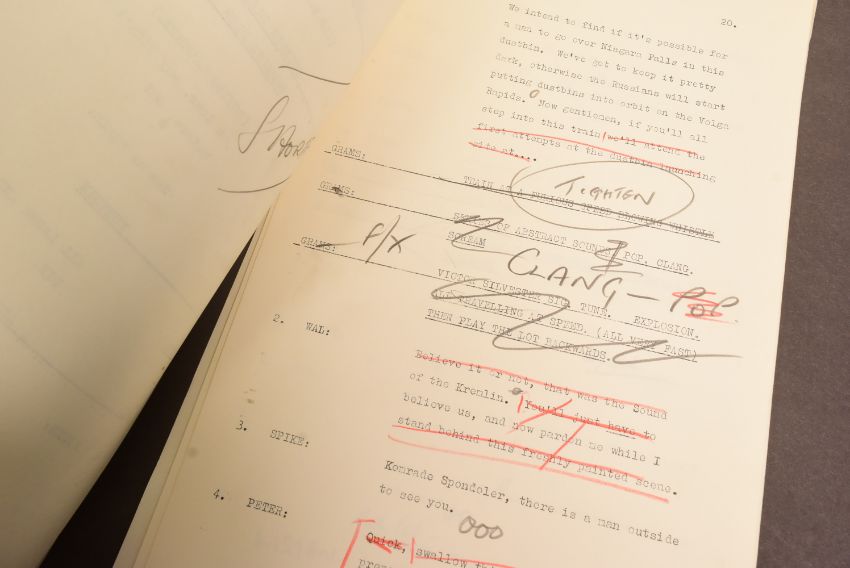 20.
We intend to find if it's possible for
a man to go over Niagara Falls in this
dustbin. We've got to keep it pretty
dark, otherwise the Russians will start
putting dustbins into orbit on the Volga
Rapids. Now gentlemen, if you'll all
step into this train we'll attend the
first attempts at the dustbin launching
site at....
GRAMS:
TRAIN AT A FURIOUS SPEED BLOWING WHISTLE
TIGHTEN
GRAMS:
SERIES OF ABSTRACT SOUNDS POP. CLANG.
SCREAM
F/X
CLANG - POP.
GRAMS:
VICTOR SILVESTER SIG. TUNE. EXPLOSION.
TRAVELLING AT SPEED. (ALL VERY FAST)
THEN PLAY THE LOT BACKWARDS.
2. WAL:
Believe it or not, that was the Sound
of the Kremlin. You'll just have to
believe us, and now pardon me while I
stand behind this freshly painted scene.
3. SPIKE:
Konrade Spondoler, there is a man outside
to see you.
4. PETER:
Quick, swallow